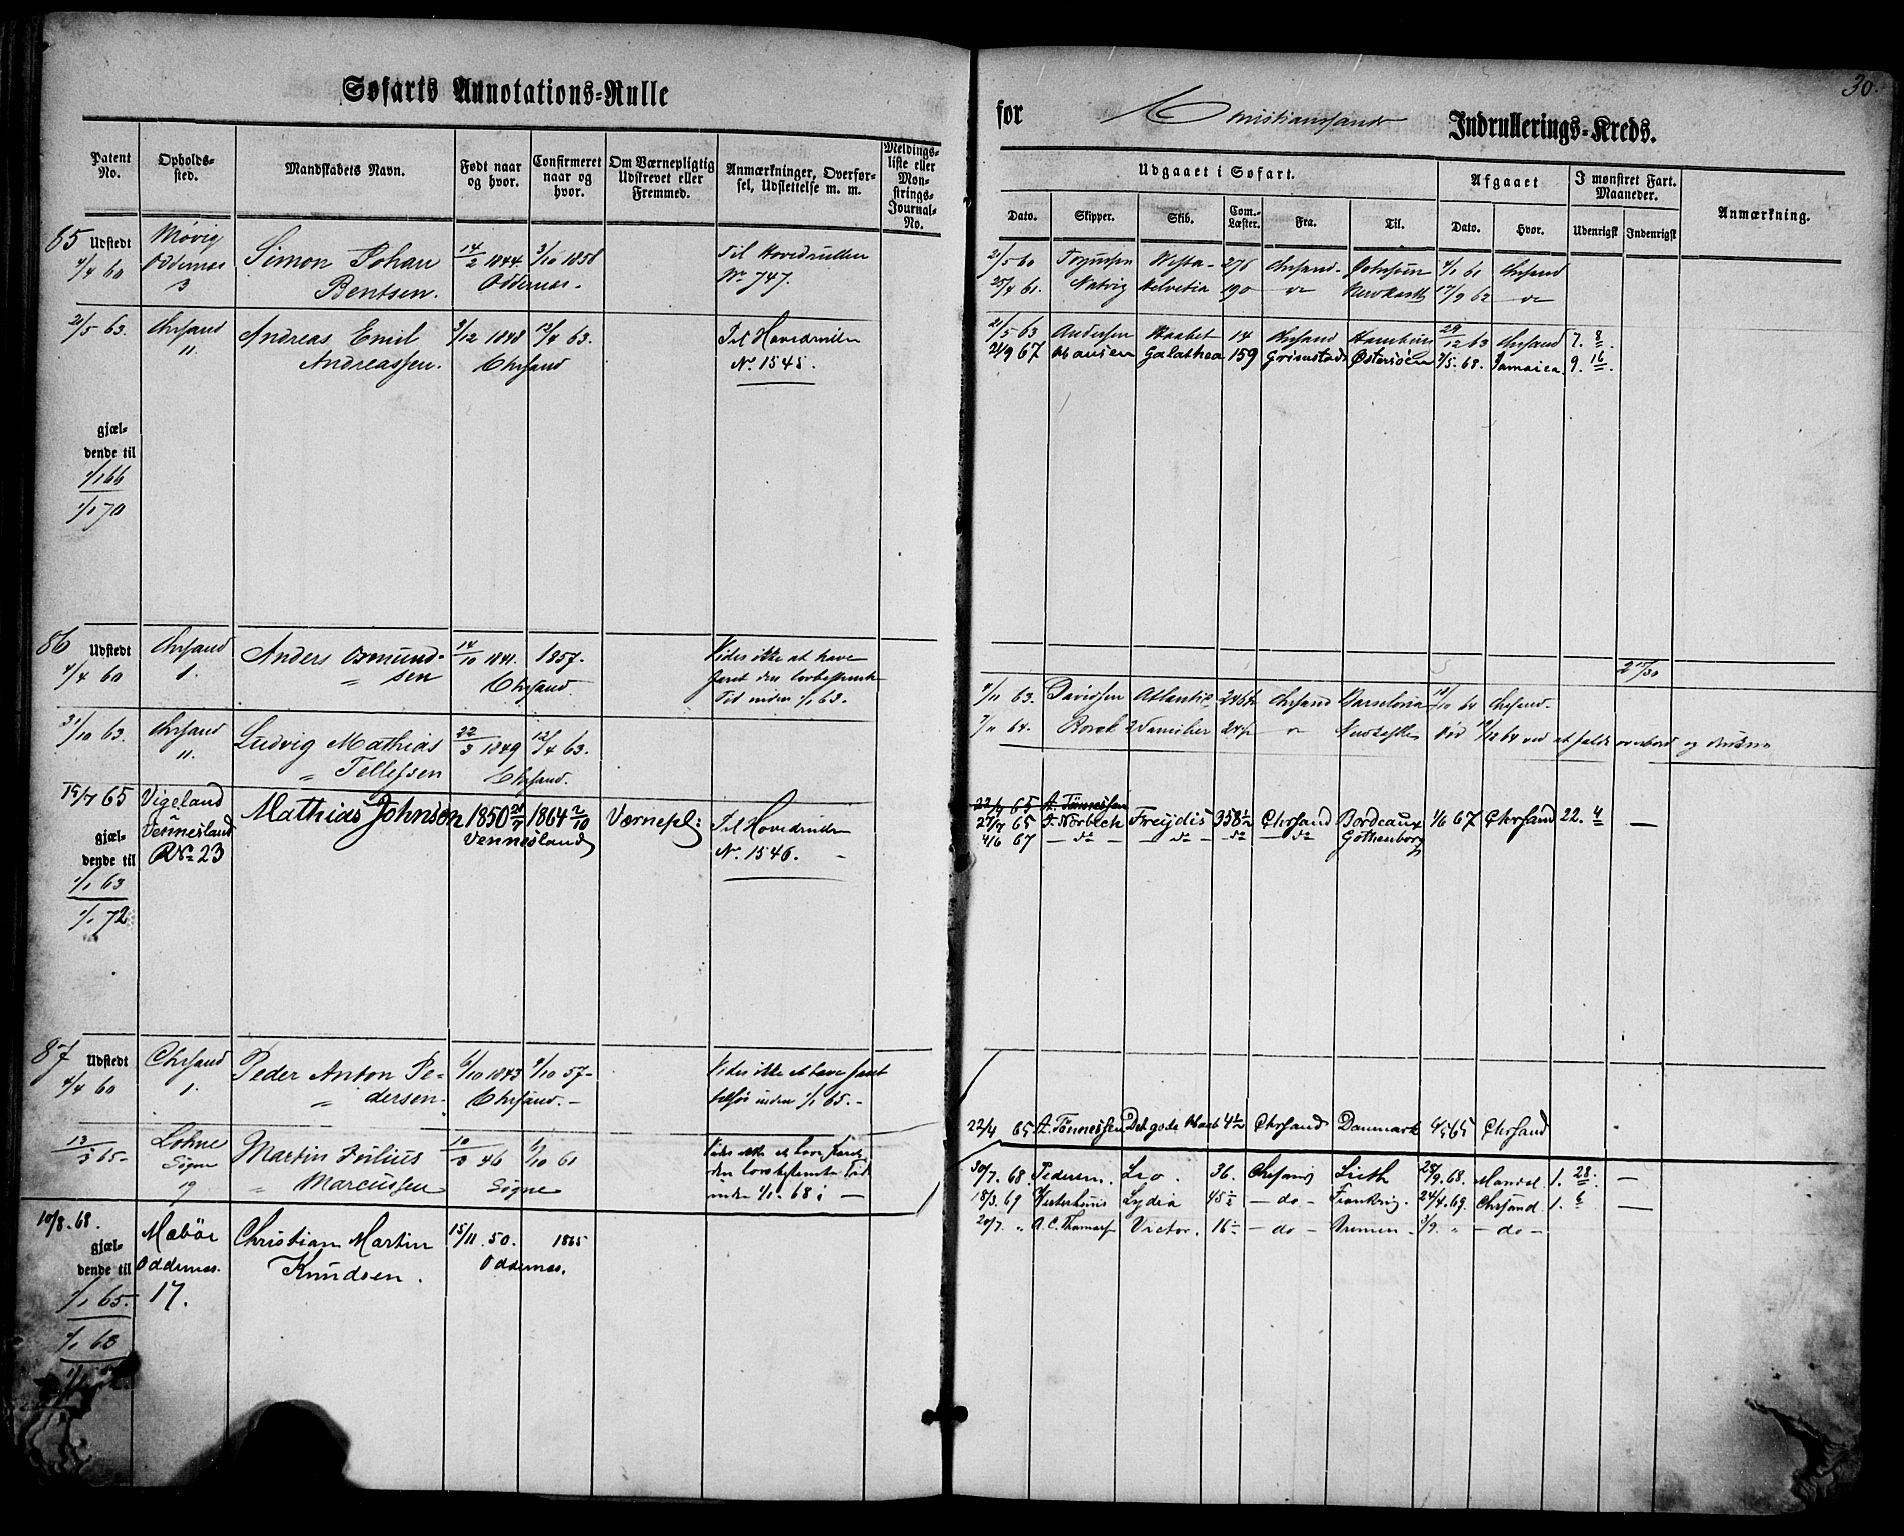 30.
Søfarts Annotations-Rulle
for Christianssands Indrullerings-Kreds.
Patent No.
Opholds-sted.
Mandskabets Navn.
Født naar og hvor.
Confirmeret naar og hvor.
Om Værnepligtig Udskrevet eller Fremmed.
Anmærkninger, Overførsel, Udslettelse m. m.
Meldings-liste eller Mon-strings-Journal-No.
Udgaaet i Søfart.
Afgaaet
I mønstret Fart. Maaneder.
Anmærkning.
Dato. Skipper. Skib. Com.-Læster. Fra. Til. Dato. Hvor. Udenrigsk Indenrigsk
85 Udstedt 4/4 60
Møvig Oddernes 3
Simon Johan Bentsen.
14/2 1844. Oddernes.
3/10 1858
Til Hovedrullen No 747.
2/5 60 Westa 276 Chrsand 4/1 61 Chrsand
25/4 61. Natvig Helvetia 190 do 17/9 62 do
21/5 63. Chrsand 11.
Andreas Emil Andreassen.
3/12 1848 Chrsand
12/4 63.
Til Hovedrullen No. 1545.
21/5 63 Andersen Haabet 14 Chrsand Hamburg 29/12 63 Chrsand 7. 8
21/9 67 Hansen Galathea 159 Grimstad Østersøen 2/5. 68. Jamaica. 9. 16
gjæl-
dende til
1/1 66
1/1 70
86 Udstedt 4/4 60
Chrsand 1.
Anders Osmund-
" sen
14/10 1841. Chrsand.
1857.
Vides ikke at have
faret den lovbestemte
Tid inden 1/1 63.
2 17/30
31/10 63. Chrsand 11.
Ludvig Mathias
" Tellefsen
22/3 1849 Chrsand.
12/4 63.
4/11 63. Davidsen Atlantic Chrsand Barselona 10 64 Chrsand.
7/11 64. Død 64 ved at falde overbord og
15/7 65 Vigeland Vennesland RNo 23
Mathias Johnsen
1850 21/7 Vennesland
1864 2/10
Værnepl:
Til Hovedrullen
No. 1546.
22/4 65 A. Tønnessen
27/7 65 J. Nørbech Freijdis 358½ Chrsand Bordeaux 1/6 67 Chrsand 22. 4 —
4/6 67 — do — — do — do — do — Gothenborg
gjæl-
dende til
1/1 63
1/1 72
87 Udstedt 4/4 60
Chrsand 1.
Peder Anton Pe-
" dersen.
6/10 1843 Chrsand. -
4/10 57-
Vides ikke at have faret
tilsøs inden 1/1 65. -
22/4 65 A. Tønnessen Det gode Haab 4½ Chrsand Danmark 65 Chrsand
13/3 65- Lohne Søgne 19
Martin Julius
" Marcussen
10/3 46 Søgne
1/10 61
Vides ikke at have faret
den lovbestemte Tid
inden 1/1. 68; —
30/7. 68. Pedersen. Leo. 36. Chrsand Leith 28/9. 68. Mandal 1. 28. —
18/3. 69 Lydia 45½ — do — Frankrig. 24/4. 69. Chrsand. 1. 6 —
20/7. " Victor. 16- — do — Bremen. 3/9. " — do —
10/8. 68.
Mæbøe Oddernes. 17.
Christian Martin
Knudsen.
15/11. 50. Oddernes.
1865
gjæl-
dende til
1/1 65.
1/1 68